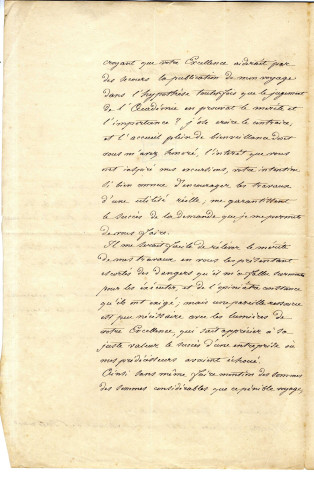 croyant que votre Excellence aiderait par
des secours la publication de mon voyage
dans l'hypothèse toutefois que le jugement
de l'Académie en prouvat le mérite et
l'importance ? j'ose croire le contraire,
et l'accueil plein de bienveillance dont
vous m'avez honoré, l'intérêt que vous
ont inspiré mes excursions, votre intention
si bien connue d'encourager les travaux
d'une utilité réelle, me garantissent
le succès de la demande que je me permets
de vous faire.
Il me serait facile de relever le mérite
de mes travaux en vous les présentant
escortés des dangers qu'il m'a fallu surmonter
pour les exécuter, et de l'opiniâtre constance
qu'ils ont exigé ; mais une pareille ressource
est peu nécessaire avec les lumières de
votre Excellence, qui sait apprécier à sa
juste valeur le succès d'une entreprise où
mes prédécesseurs avaient échoué.
Ainsi sans même faire mention des sommes
des sommes considérables que ce pénible voyage,